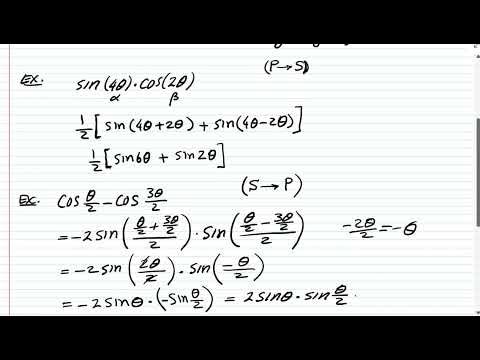 (P→S)
Ex. sin(4θ)·cos(2θ)
α β
1/2[sin(4θ+2θ) + sin(4θ-2θ)]
1/2[sin6θ + sin2θ]
Ex. cos θ/2 - cos 3θ/2 (S→P)
= -2 sin((θ/2 + 3θ/2)/2) · sin((θ/2 - 3θ/2)/2) -2θ/2 = -θ
= -2 sin(2θ/2) · sin(-θ/2)
= -2 sinθ · (-sin θ/2) = 2 sinθ · sin θ/2.